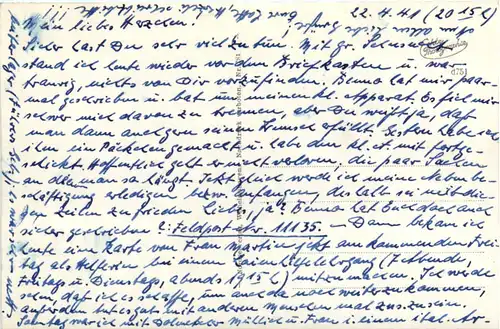 22.4.41 (20 15 h)
Mein liebes Herzchen!
Sicher hast Du sehr viel zu tun. Mit gr. Sehnsucht
stand ich heute wieder vor dem Briefkasten u. war
traurig, nichts von Dir vorzufinden. Benno hat mir paar-
mal geschrieben u. bat um meinen kl. Apparat. Es fiel mir
schwer mich davon zu trennen, aber Du weißt ja, daß
man dann auch gern seinen Wunsch erfüllt. Gestern habe ich
ihm ein Päckchen gemacht u. habe den kl. mit fortge-
schickt. Hoffentlich geht er nicht verloren, die paar Sachen
an denen man so hängt. Jetzt gleich werde ich meine Nebenbe-
schäftigung erledigen bezw. anfangen, deshalb sei mit die-
sen Zeilen zufrieden Liebes, ja? Benno hat Euch doch auch
sicher geschrieben?: Feldpost-Nr. 11135. - Dann bekam ich
heute eine Karte von Frau Martin jetzt am kommenden Frei-
tag als Helferin bei einem Laienhelferlehrgang (7 Abende,
Freitags u. Dienstags, abends 19 15 h) mitzumachen. Ich werde
sehen, daß ich es schaffe, um auch da noch weiterzukommen,
außerdem tut es gut mit anderen Menschen mal zus. zu sein.
Sonntag war ich mit u. Frau i. einem ital.